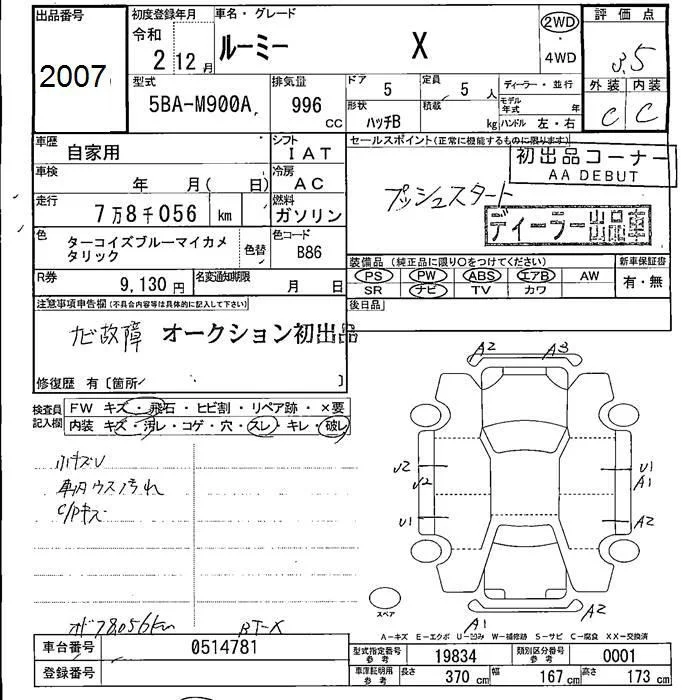 出品番号
2007
初度登録年月
令和
2 12月
車名・グレード
ルーミー X
2WD
・
4WD
評価点
3.5
外装 内装
C C
型式
5BA-M900A
排気量
996
CC
ドア
5
定員
5人
形状
ハッチB
積載
kg
ディーラー・並行
モデル年式 年
ハンドル 左・右
車歴
自家用
シフト
IAT
車検
年 月( 日)
冷房
AC
走行
7万8千056 km
燃料
ガソリン
色
ターコイズブルーマイカメ
タリック
色替
色コード
B86
R券
9,130円
名変通知期限
月 日
セールスポイント(正常に機能するものに限ります)
初出品コーナー
AA DEBUT
プッシュスタート
ディーラー出品車
装備品(純正品に限り○をつけてください)
新車保証書
PS PW ABS エアB AW
SR ナビ TV カワ
有・無
後日品
注意事項申告欄(不具合内容等は具体的に記入して下さい)
ナビ故障
オークション初出品
修復歴 有〔箇所 〕
検査員
記入欄
FW キズ・飛石・ヒビ割・リペア跡・×要
内装 キズ・汚レ・コゲ・穴・スレ・キレ・破レ
小キズU
車内ウス汚れ
C/Pキズ
オド78,056km
RT-X
A2 A3
U2
U2
U1
U1
A1
A2
A1 A2
スペア
A-キズ E-エクボ U-凹み W-補修跡 S-サビ C-腐食 XX-交換済
車台番号
0514781
登録番号
型式指定番号
参考
19834
類別区分番号
参考
0001
車庫証明用
参考
長さ 370 cm
幅 167 cm
高さ 173 cm